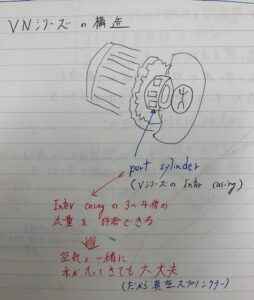 VNシリーズ の 構造
port sylinder
(Vシリーズの Inter casing)
Inter casing の 3〜4倍の
流量を 許容できる
空気と一緒に
水が入ってきても 大丈夫
(だから真空スプリンクラー)